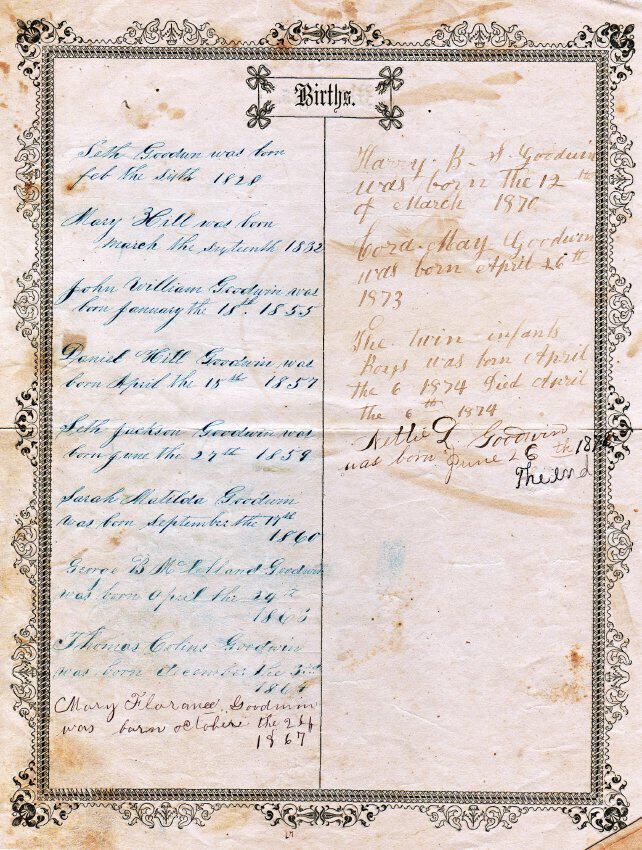 Births.
Seth Goodwin was born
feb the sixth 1828
Mary Hill was born
march the sixteenth 1832
John William Goodwin was
born January the 18th. 1855
Daniel Hill Goodwin was
born April the 15th 1857
Seth Jackson Goodwin was
born June the 27th 1859
Sarah Matilda Goodwin
was born september the
1860
George B Goodwin
was born april the 24th
Thomas Colins Goodwin
was born december the
Mary Florance Goodwin
was born octobere the
1867
Harry. B. S. Goodwin
was born the 12th
of March 1870
Cora May Goodwin
was born April 26th
1873
The twin infants
Boys was born April
the 6 1874 Died April
the 6th 1874
Nettie L Goodwin
was born June 26th
The End